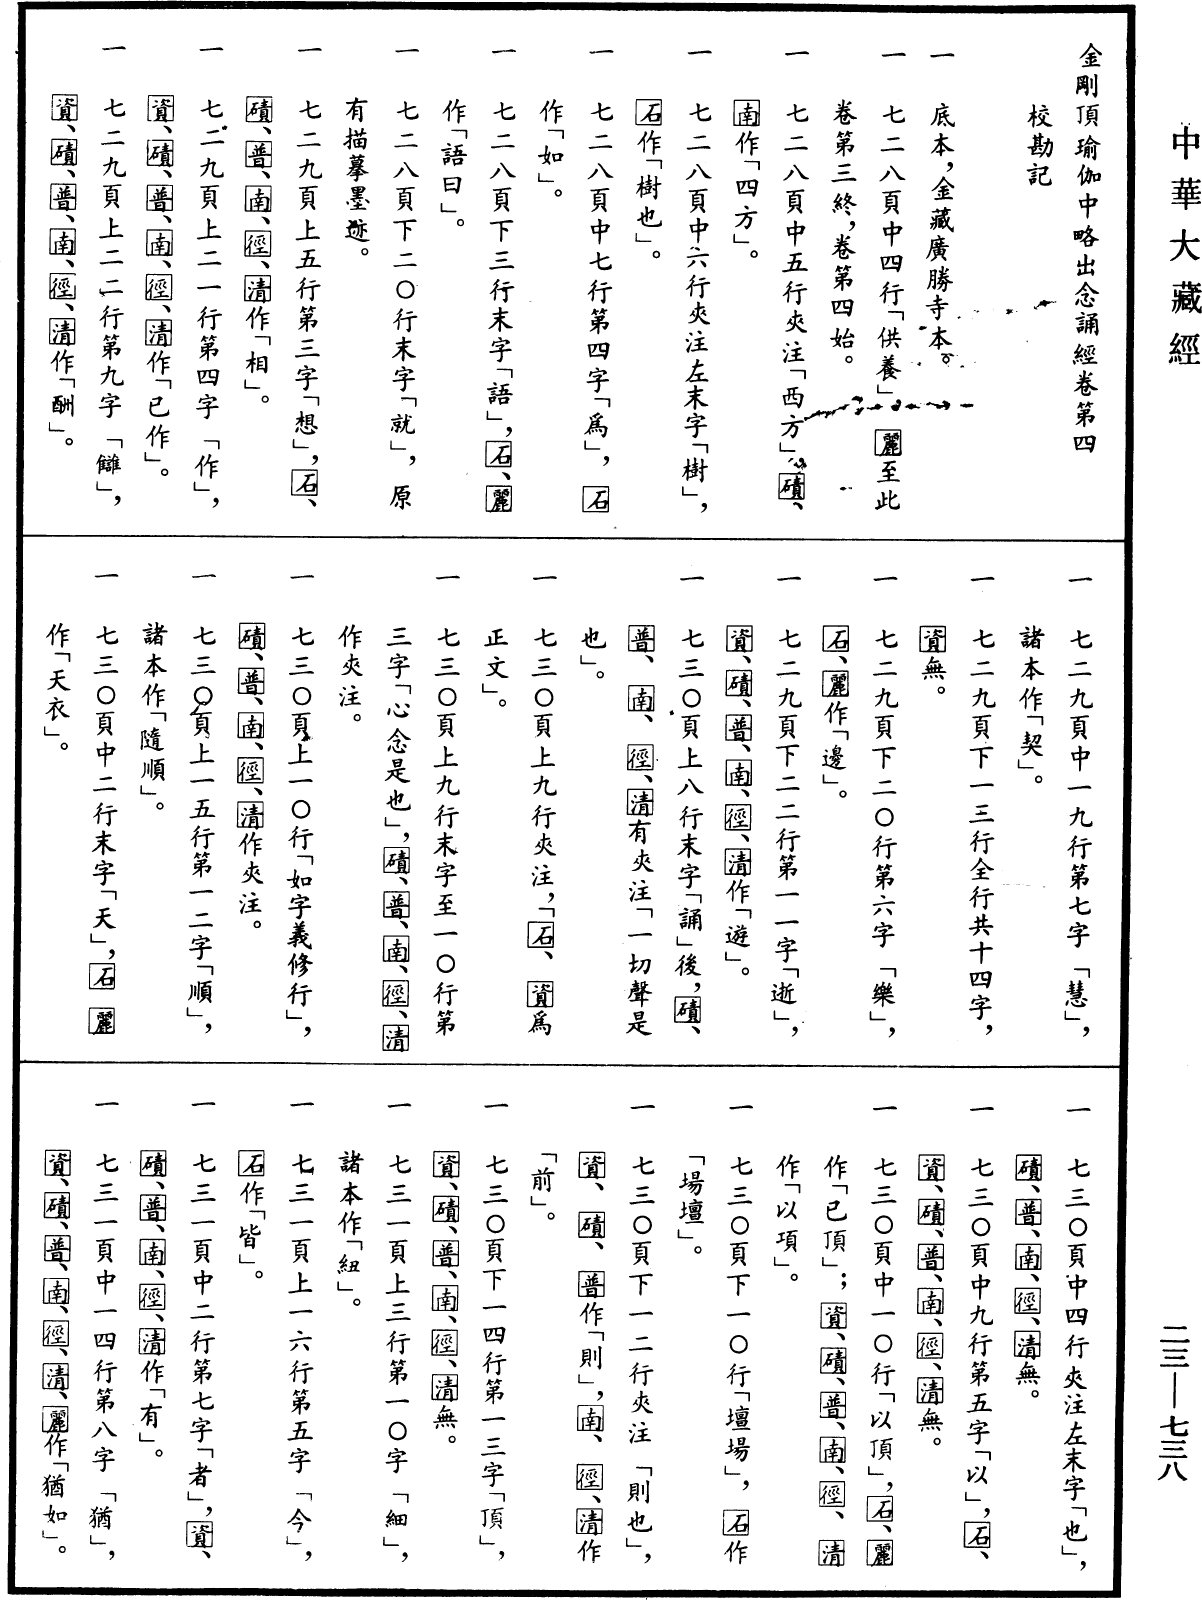 中華大藏經
金剛頂瑜伽中略出念誦經卷第四
校勘記
一 底本，金藏廣勝寺本。
一 七二八頁中四行「供養」，麗至此
卷第三終，卷第四始。
一 七二八頁中五行夾注「西方」，磧、
南作「四方」。
一 七二八頁中六行夾注左末字「樹」，
石作「樹也」。
一 七二八頁中七行第四字「爲」，石
作「如」。
一 七二八頁下三行末字「語」，石、麗
作「語曰」。
一 七二八頁下二〇行末字「就」，原
有描摹墨迹。
一 七二九頁上五行第三字「想」，石、
磧、普、南、徑、清作「相」。
一 七二九頁上二一行第四字「作」，
資、磧、普、南、徑、清作「已作」。
一 七二九頁上二二行第九字「讎」，
資、磧、普、南、徑、清作「酬」。
一 七二九頁中一九行第七字「慧」，
諸本作「契」。
一 七二九頁下一三行全行共十四字，
資無。
一 七二九頁下二〇行第六字「樂」，
石、麗作「邊」。
一 七二九頁下二二行第一一字「逝」，
資、磧、普、南、徑、清作「遊」。
一 七三〇頁上八行末字「誦」後，磧、
普、南、徑、清有夾注「一切聲是
也」。
一 七三〇頁上九行夾注，「石、資爲
正文」。
一 七三〇頁上九行末字至一〇行第
三字「心念是也」，磧、普、南、徑、清
作夾注。
一 七三〇頁上一〇行「如字義修行」，
磧、普、南、徑、清作夾注。
一 七三〇頁上一五行第一二字「順」，
諸本作「隨順」。
一 七三〇頁中二行末字「天」，石 麗
作「天衣」。
一 七三〇頁中四行夾注左末字「也」，
磧、普、南、徑、清無。
一 七三〇頁中九行第五字「以」，石、
資、磧、普、南、徑、清無。
一 七三〇頁中一〇行「以頂」，石、麗
作「已頂」；資、磧、普、南、徑、清
作「以項」。
一 七三〇頁下一〇行「壇場」，石作
「場壇」。
一 七三〇頁下一二行夾注「則也」，
資、磧、普作「則」，南、徑、清作
「前」。
一 七三〇頁下一四行第一三字「頂」，
資、磧、普、南、徑、清無。
一 七三一頁上三行第一〇字「細」，
諸本作「紐」。
一 七三一頁上一六行第五字「今」，
石作「皆」。
一 七三一頁中二行第七字「者」，資、
磧、普、南、徑、清作「有」。
一 七三一頁中一四行第八字「猶」，
資、磧、普、南、徑、清、麗作「猶如」。
二三—七三八